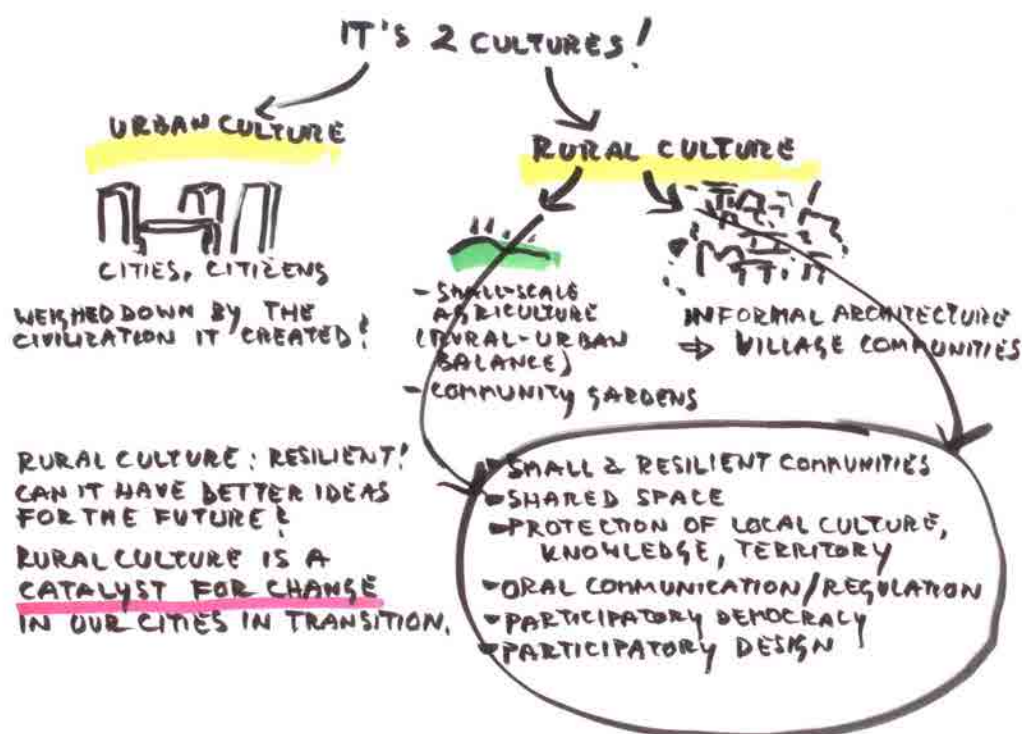 IT'S 2 CULTURES!
URBAN CULTURE
RURAL CULTURE
CITIES, CITIZENS
WEIGHED DOWN BY THE
CIVILIZATION IT CREATED?
- SMALL-SCALE
AGRICULTURE
(RURAL-URBAN
BALANCE)
- COMMUNITY GARDENS
INFORMAL ARCHITECTURE
⇒ VILLAGE COMMUNITIES
RURAL CULTURE: RESILIENT!
CAN IT HAVE BETTER IDEAS
FOR THE FUTURE?
RURAL CULTURE IS A
CATALYST FOR CHANGE
IN OUR CITIES IN TRANSITION.
- SMALL & RESILIENT COMMUNITIES
- SHARED SPACE
- PROTECTION OF LOCAL CULTURE,
KNOWLEDGE, TERRITORY
- ORAL COMMUNICATION/REGULATION
- PARTICIPATORY DEMOCRACY
- PARTICIPATORY DESIGN